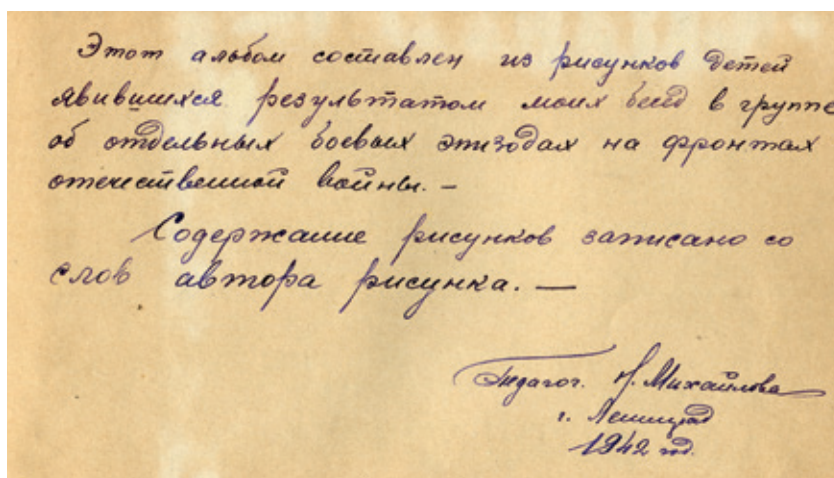 Этот альбом составлен из рисунков детей
явившихся результатом моих бесед в группе
об отдельных боевых эпизодах на фронтах
отечественной войны. –
Содержание рисунков записано со
слов автора рисунка. —
Педагог. Н. Михайлова
г. Ленинград
1942 год.